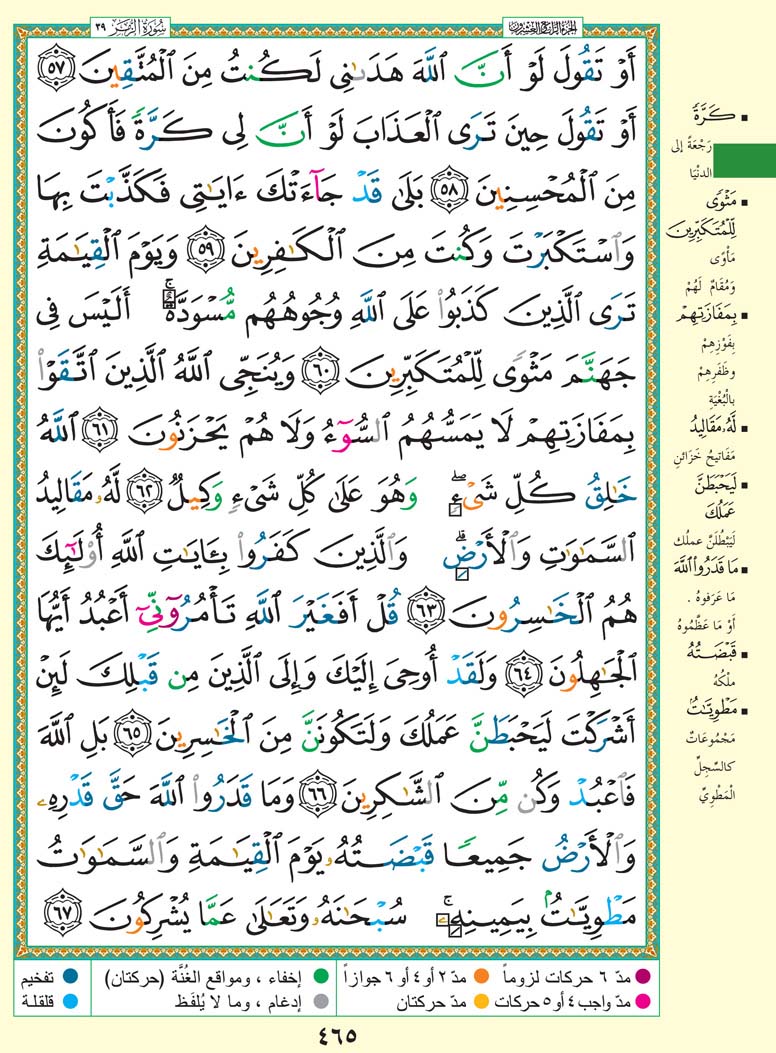 سُورَةُ الزُّمَر ٣٩
الجزء الرابع والعشرون
أَوْ تَقُولَ لَوْ أَنَّ ٱللَّهَ هَدَىٰنِى لَكُنتُ مِنَ ٱلْمُتَّقِينَ ٥٧
أَوْ تَقُولَ حِينَ تَرَى ٱلْعَذَابَ لَوْ أَنَّ لِى كَرَّةً فَأَكُونَ
مِنَ ٱلْمُحْسِنِينَ ٥٨ بَلَىٰ قَدْ جَآءَتْكَ ءَايَـٰتِى فَكَذَّبْتَ بِهَا
وَٱسْتَكْبَرْتَ وَكُنتَ مِنَ ٱلْكَـٰفِرِينَ ٥٩ وَيَوْمَ ٱلْقِيَـٰمَةِ
تَرَى ٱلَّذِينَ كَذَبُوا۟ عَلَى ٱللَّهِ وُجُوهُهُم مُّسْوَدَّةٌ ۚ أَلَيْسَ فِى
جَهَنَّمَ مَثْوًى لِّلْمُتَكَبِّرِينَ ٦٠ وَيُنَجِّى ٱللَّهُ ٱلَّذِينَ ٱتَّقَوْا۟
بِمَفَازَتِهِمْ لَا يَمَسُّهُمُ ٱلسُّوٓءُ وَلَا هُمْ يَحْزَنُونَ ٦١ ٱللَّهُ
خَـٰلِقُ كُلِّ شَىْءٍ ۖ وَهُوَ عَلَىٰ كُلِّ شَىْءٍ وَكِيلٌ ٦٢ لَّهُۥ مَقَالِيدُ
ٱلسَّمَـٰوَٰتِ وَٱلْأَرْضِ ۗ وَٱلَّذِينَ كَفَرُوا۟ بِـَٔايَـٰتِ ٱللَّهِ أُو۟لَـٰٓئِكَ
هُمُ ٱلْخَـٰسِرُونَ ٦٣ قُلْ أَفَغَيْرَ ٱللَّهِ تَأْمُرُوٓنِّىٓ أَعْبُدُ أَيُّهَا
ٱلْجَـٰهِلُونَ ٦٤ وَلَقَدْ أُوحِىَ إِلَيْكَ وَإِلَى ٱلَّذِينَ مِن قَبْلِكَ لَئِنْ
أَشْرَكْتَ لَيَحْبَطَنَّ عَمَلُكَ وَلَتَكُونَنَّ مِنَ ٱلْخَـٰسِرِينَ ٦٥ بَلِ ٱللَّهَ
فَٱعْبُدْ وَكُن مِّنَ ٱلشَّـٰكِرِينَ ٦٦ وَمَا قَدَرُوا۟ ٱللَّهَ حَقَّ قَدْرِهِۦ
وَٱلْأَرْضُ جَمِيعًا قَبْضَتُهُۥ يَوْمَ ٱلْقِيَـٰمَةِ وَٱلسَّمَـٰوَٰتُ
مَطْوِيَّـٰتٌۢ بِيَمِينِهِۦ ۚ سُبْحَـٰنَهُۥ وَتَعَـٰلَىٰ عَمَّا يُشْرِكُونَ ٦٧
▪ كَرَّةً
رَجْعَةً إلى
الدنْيَا
▪ مَثْوًى
لِّلْمُتَكَبِّرِينَ
مَأْوًى
وَمُقَامٌ لَهُمْ
▪ بِمَفَازَتِهِمْ
بِفَوْزِهِمْ
وظَفَرِهِمْ
بِالْبُغْيَةِ
▪ لَهُ مَقَالِيدُ
مَفَاتِيحُ خَزَائنِ
▪ لَيَحْبَطَنَّ
عَمَلُكَ
لَيَبْطُلَنَّ عملُك
▪ مَا قَدَرُوا۟ ٱللَّهَ
مَا عَرَفوهُ .
أَوْ مَا عَظَّمُوهُ
▪ قَبْضَتُهُ
مِلْكُهُ
▪ مَطْوِيَّـٰتٌ
مَجْمُوعَاتٌ
كالسِّجِلِّ
الْمَطْوِيِّ
مدّ ٦ حركات لزوماً
مدّ ٢ أو ٤ أو ٦ جوازاً
إخفاء ، ومواقع الغُنَّة (حركتان)
تفخيم
مدّ واجب ٤ أو ٥ حركات
مدّ حركتان
إدغام ، وما لا يُلفَظ
قلقلة
٤٦٥